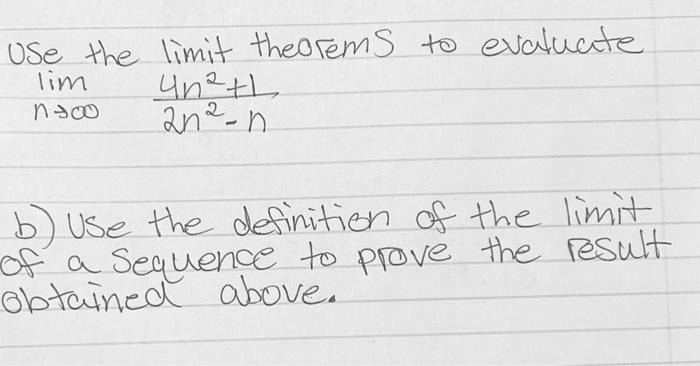 Use the limit theorems to evaluate
lim 4n²+1
n→∞ 2n²-n
b) Use the definition of the limit
of a sequence to prove the result
obtained above.